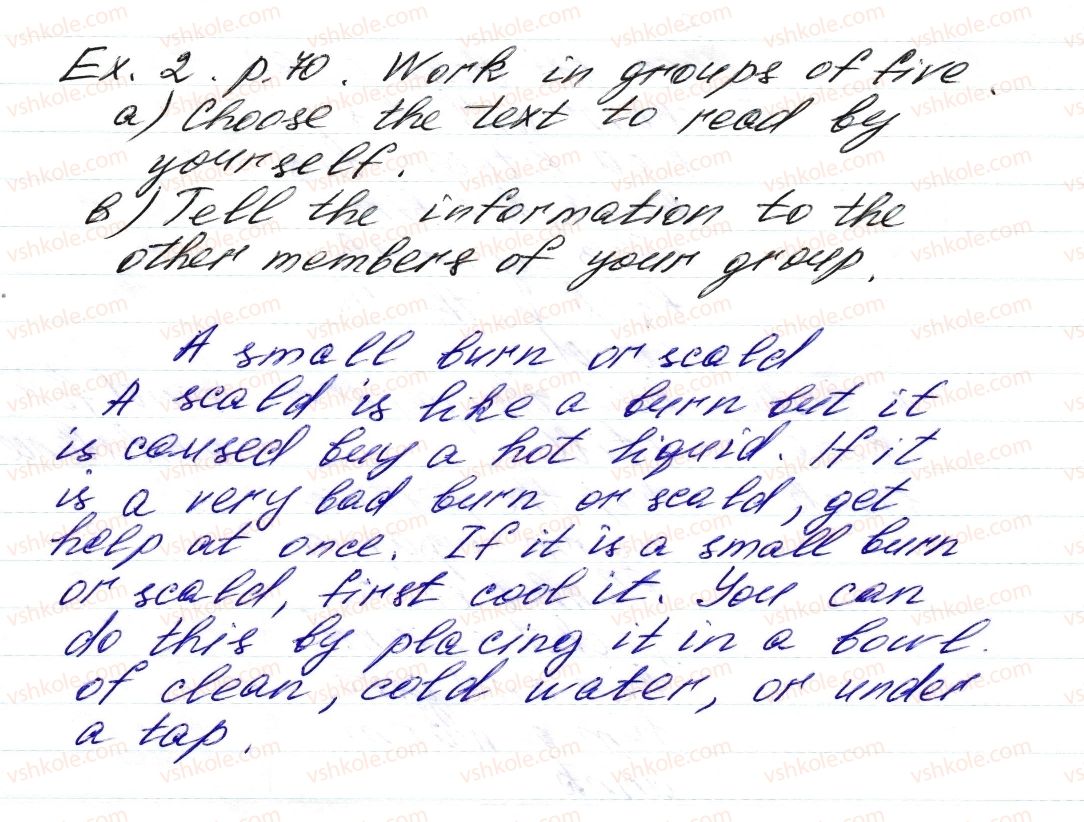 Ex. 2. p. 70. Work in groups of five.
a) Choose the text to read by
yourself.
b) Tell the information to the
other members of your group.
A small burn or scald
A scald is like a burn but it
is caused buy a hot liquid. If it
is a very bad burn or scald, get
help at once. If it is a small burn
or scald, first cool it. You can
do this by placing it in a bowl.
of clean, cold water, or under
a tap.